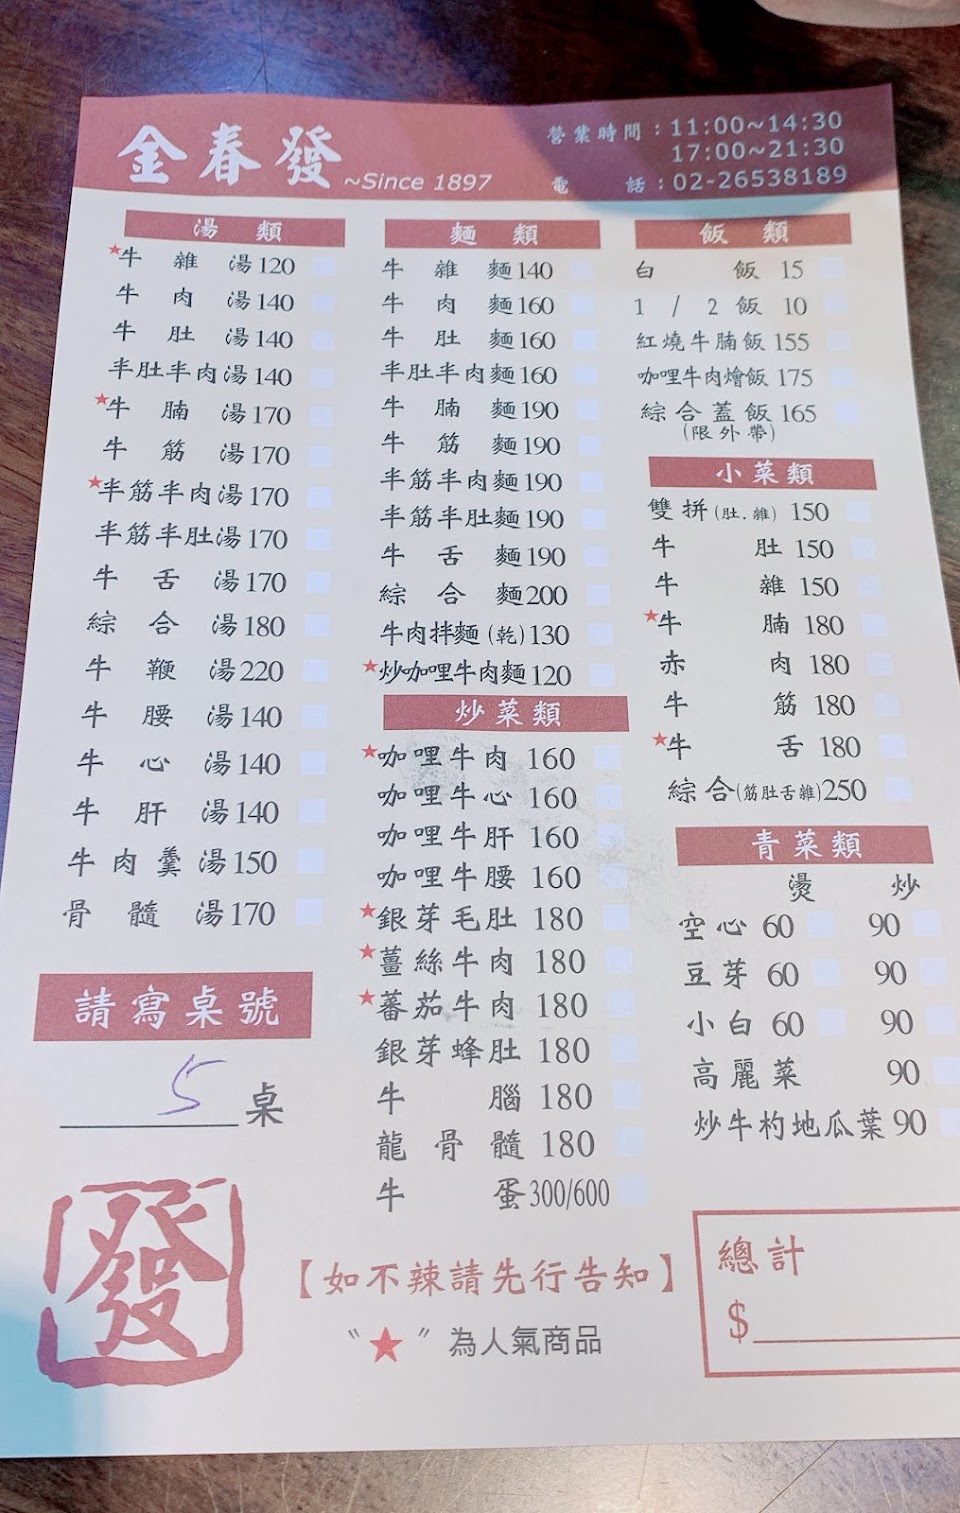 金春發 ~Since 1897
營業時間：11:00~14:30
17:00~21:30
電話：02-26538189
湯類
★牛雜湯120
牛肉湯140
牛肚湯140
半肚半肉湯140
★牛腩湯170
牛筋湯170
★半筋半肉湯170
半筋半肚湯170
牛舌湯170
綜合湯180
牛鞭湯220
牛腰湯140
牛心湯140
牛肝湯140
牛肉羹湯150
骨髓湯170
請寫桌號
5桌
發
麵類
牛雜麵140
牛肉麵160
牛肚麵160
半肚半肉麵160
牛腩麵190
牛筋麵190
半筋半肉麵190
半筋半肚麵190
牛舌麵190
綜合麵200
牛肉拌麵(乾)130
★炒咖哩牛肉麵120
炒菜類
★咖哩牛肉 160
咖哩牛心 160
咖哩牛肝 160
咖哩牛腰 160
★銀芽毛肚 180
★薑絲牛肉 180
★蕃茄牛肉 180
銀芽蜂肚 180
牛腦 180
龍骨髓 180
牛蛋300/600
飯類
白飯 15
1/2飯 10
紅燒牛腩飯 155
咖哩牛肉燴飯 175
綜合蓋飯 165
(限外帶)
小菜類
雙拼(肚.雜) 150
牛肚 150
牛雜 150
★牛腩 180
赤肉 180
牛筋 180
★牛舌 180
綜合(筋肚舌雜)250
青菜類
燙 炒
空心 60 90
豆芽 60 90
小白 60 90
高麗菜 90
炒牛杓地瓜葉 90
【如不辣請先行告知】
〝★〞為人氣商品
總計
$